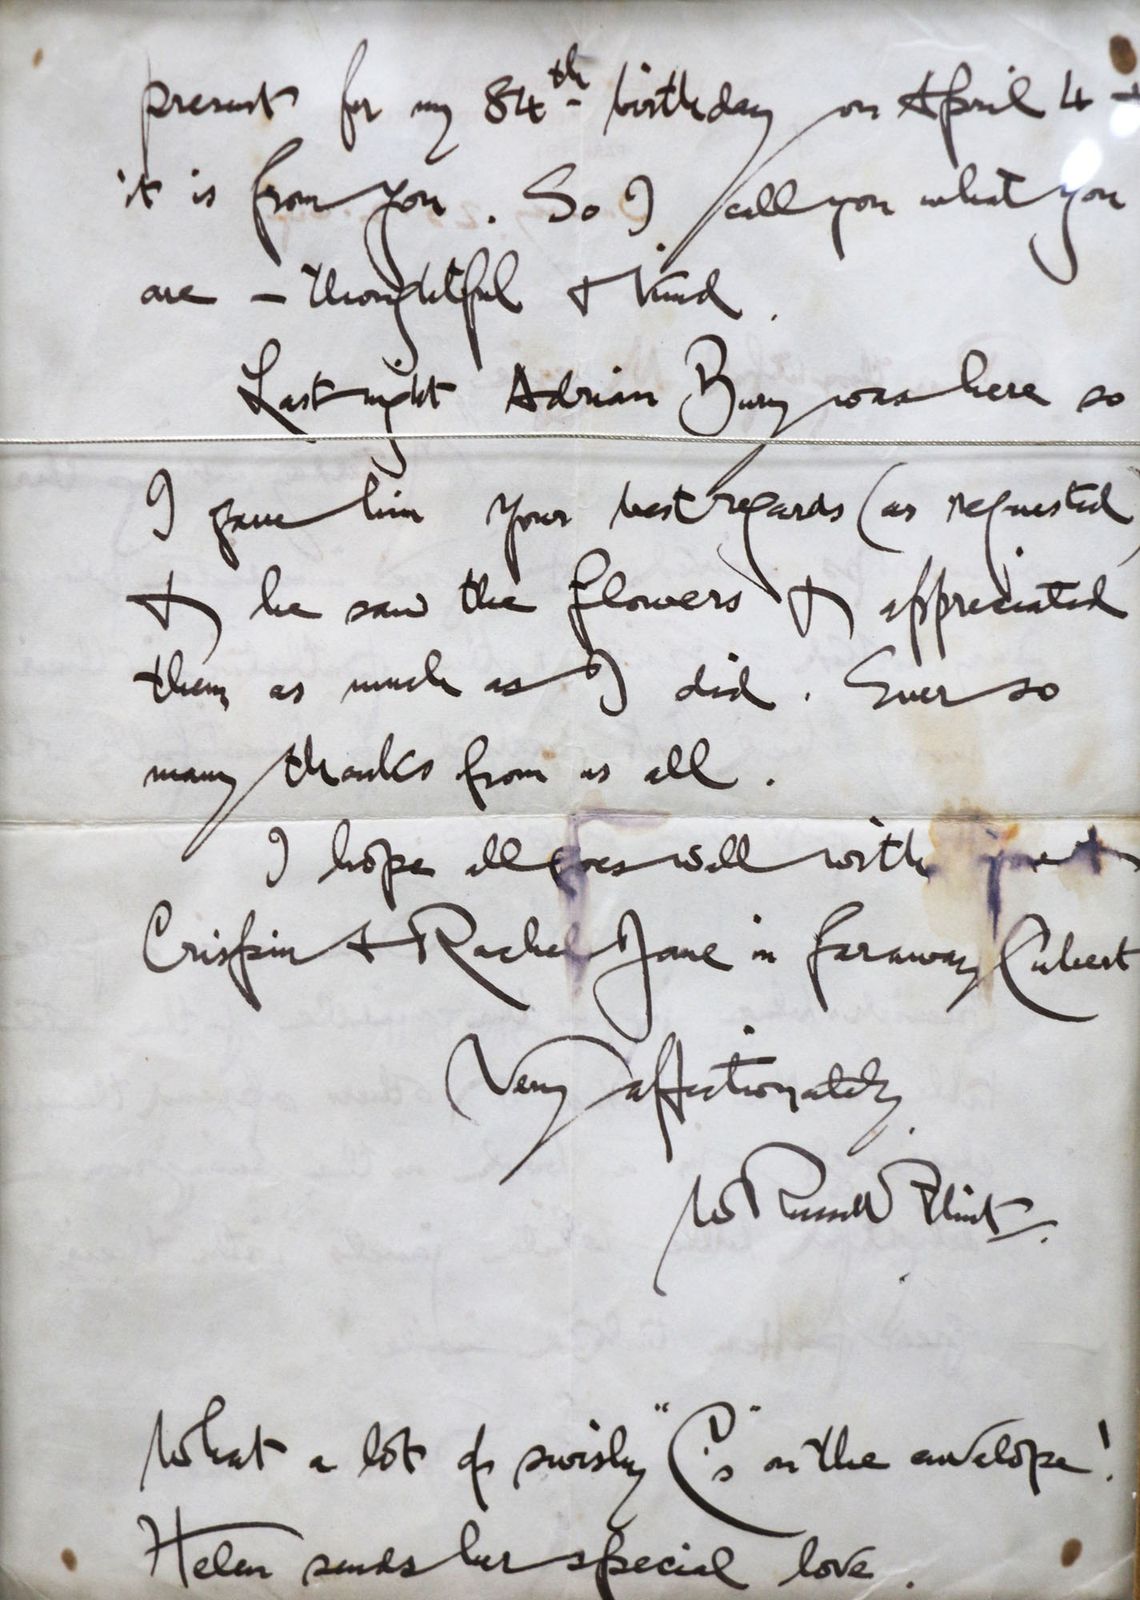 present for my 84th birthday on April 4 -
it is from you. So I call you what you
are - thoughtful & kind.
Last night Adrian Bury was here so
I gave him your best regards (as requested)
& he saw the flowers & appreciated
them as much as I did. Ever so
many thanks from us all.
I hope all goes well with you &
Crispin & Rachel Jane in faraway Cubert
Very affectionately,
W Russell Flint.
What a lot of swishy "C's" on the envelope!
Helen sends her special love.